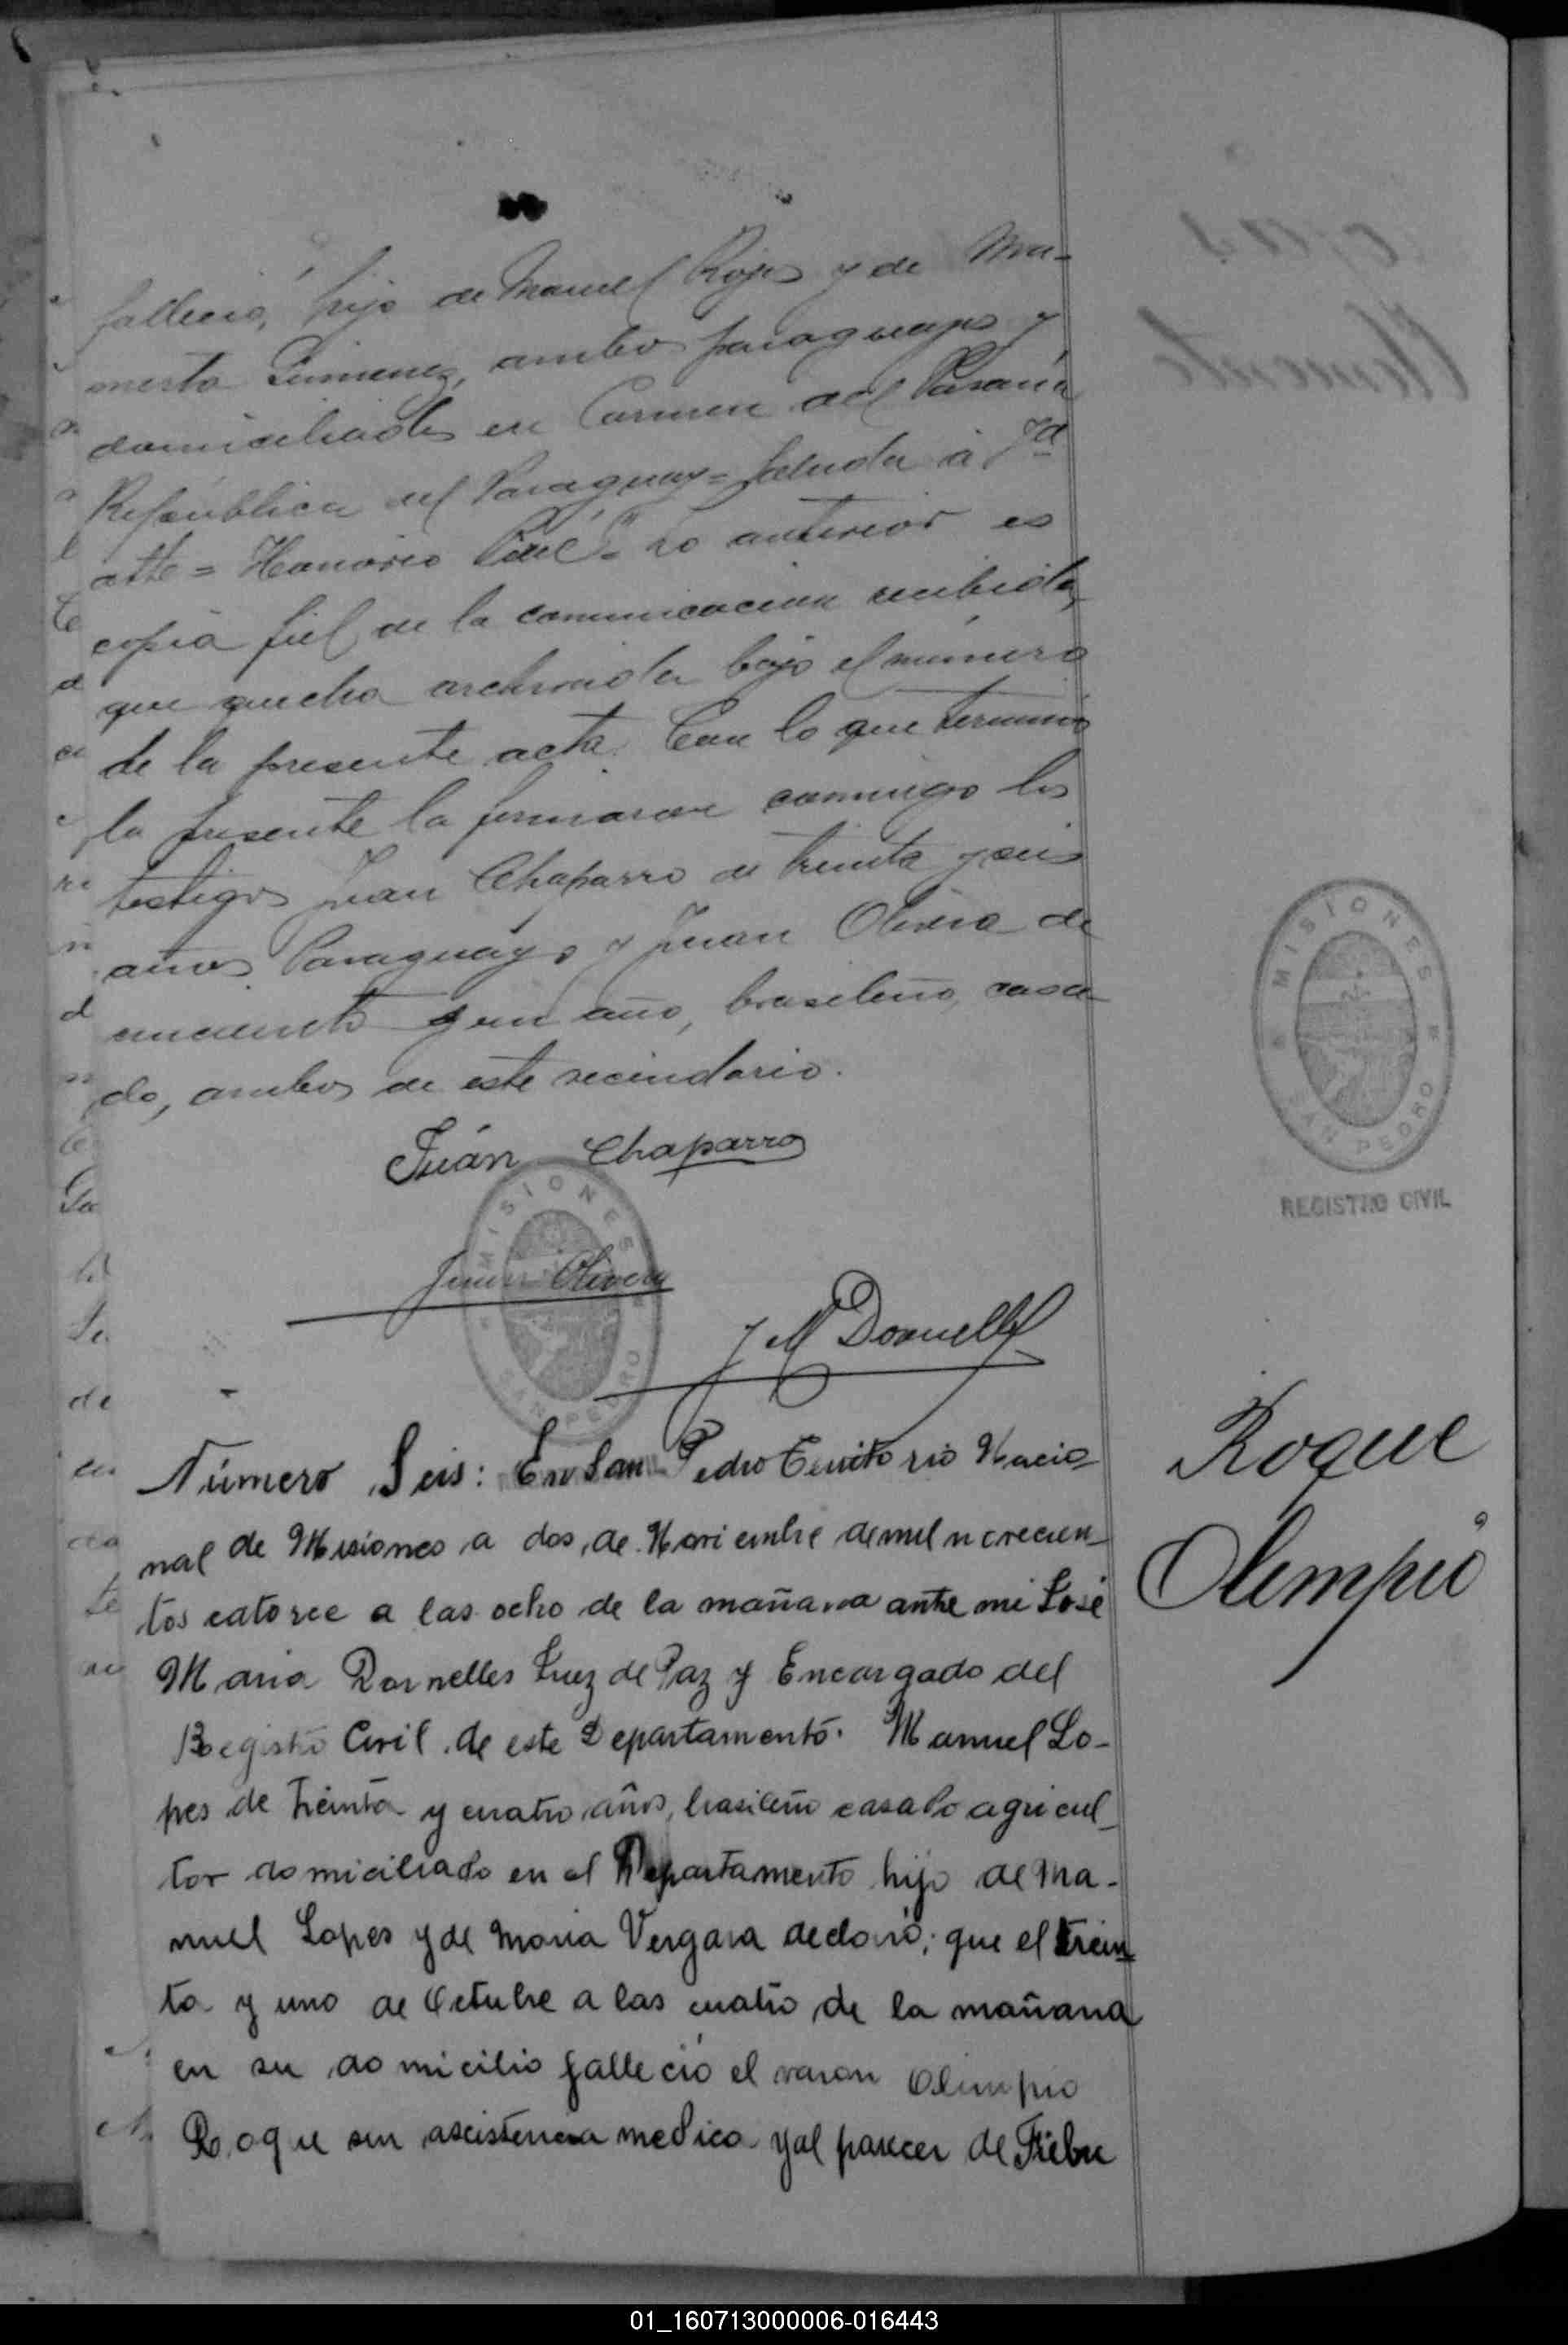 falleció, hijo de Manuel Rojas y de Mo-
desta Gimenez, ambos paraguayos y
domiciliados en Carmen del Paraná
República del Paraguay = Saluda á Vd
atte = Honorio " Lo anterior es
copia fiel de la comunicación recibida,
que queda archivada bajo el número
de la presente acta. Con lo que terminó
la presente la firmaron conmigo los
testigos Juan Chaparro de treinta y seis
años Paraguayo y Juan Olivera de
cincuenta y un año, brasileño, casa-
do, ambos de este vecindario.
Juán Chaparro
Juan Olivera
MISIONES
SAN PEDRO
J M Dornelles
MISIONES
SAN PEDRO
REGISTRO CIVIL
Roque
Olimpio
Número Seis: En San Pedro Territorio Nacio-
nal de Misiones a dos de Noviembre de mil novecien-
tos catorce a las ocho de la mañana ante mi José
Maria Dornelles Juez de Paz y Encargado del
Registro Civil de este Departamento. Manuel Lo-
pes de treinta y cuatro años, brasileño casado agricul-
tor domiciliado en el Departamento hijo de Ma-
nuel Lopes y de Maria Vergara declaró; que el trein-
ta y uno de Octubre a las cuatro de la mañana
en su domicilio falleció el varon Olimpio
Roque sin ascistencia medica y al parecer de Fiebre
01_160713000006-016443